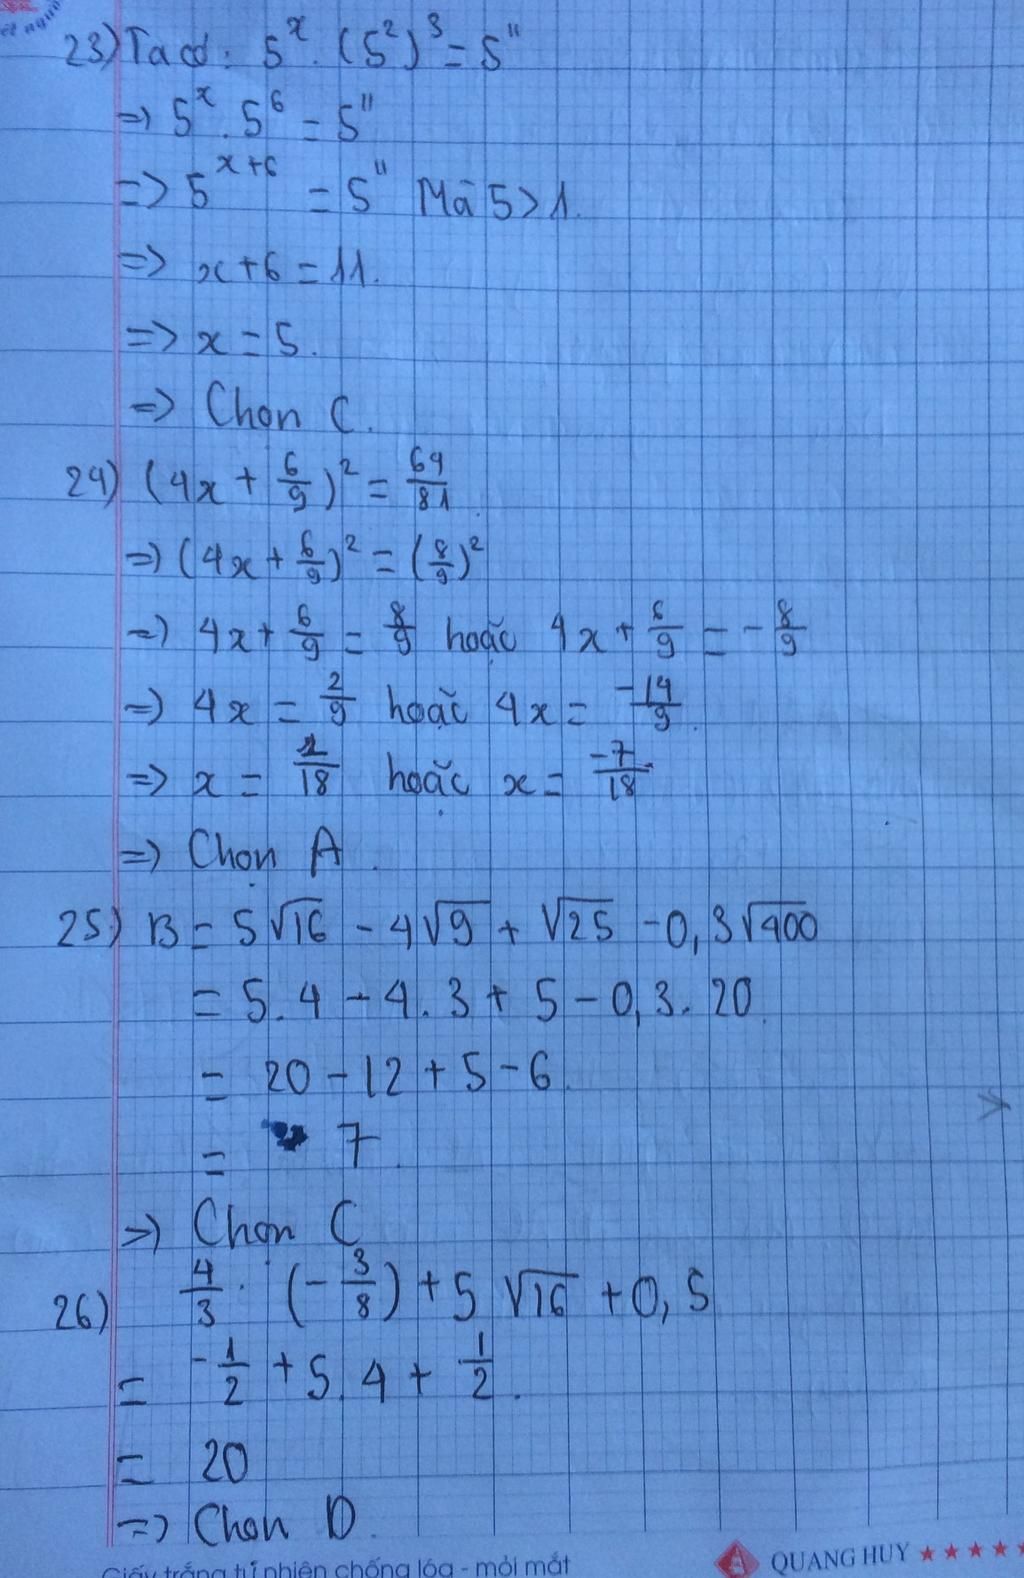 23) Ta có: 5^x . (5^2)^3 = 5^11
=> 5^x . 5^6 = 5^11
=> 5^(x+6) = 5^11 Mà 5 > 1.
=> x + 6 = 11.
=> x = 5.
=> Chọn C.
24) (4x + 6/9)^2 = 64/81
=> (4x + 6/9)^2 = (8/9)^2
=> 4x + 6/9 = 8/9 hoặc 4x + 6/9 = -8/9
=> 4x = 2/9 hoặc 4x = -14/9.
=> x = 1/18 hoặc x = -7/18
=> Chọn A.
25) B = 5√16 - 4√9 + √25 - 0,3√400
= 5.4 - 4.3 + 5 - 0,3.20.
= 20 - 12 + 5 - 6.
= 7.
=> Chọn C
26) 4/3 . (-3/8) + 5√16 + 0,5
= -1/2 + 5.4 + 1/2.
= 20
=> Chọn D.
Giấy trắng tự nhiên chống lóa - mỏi mắt
QUANG HUY ★★★★★